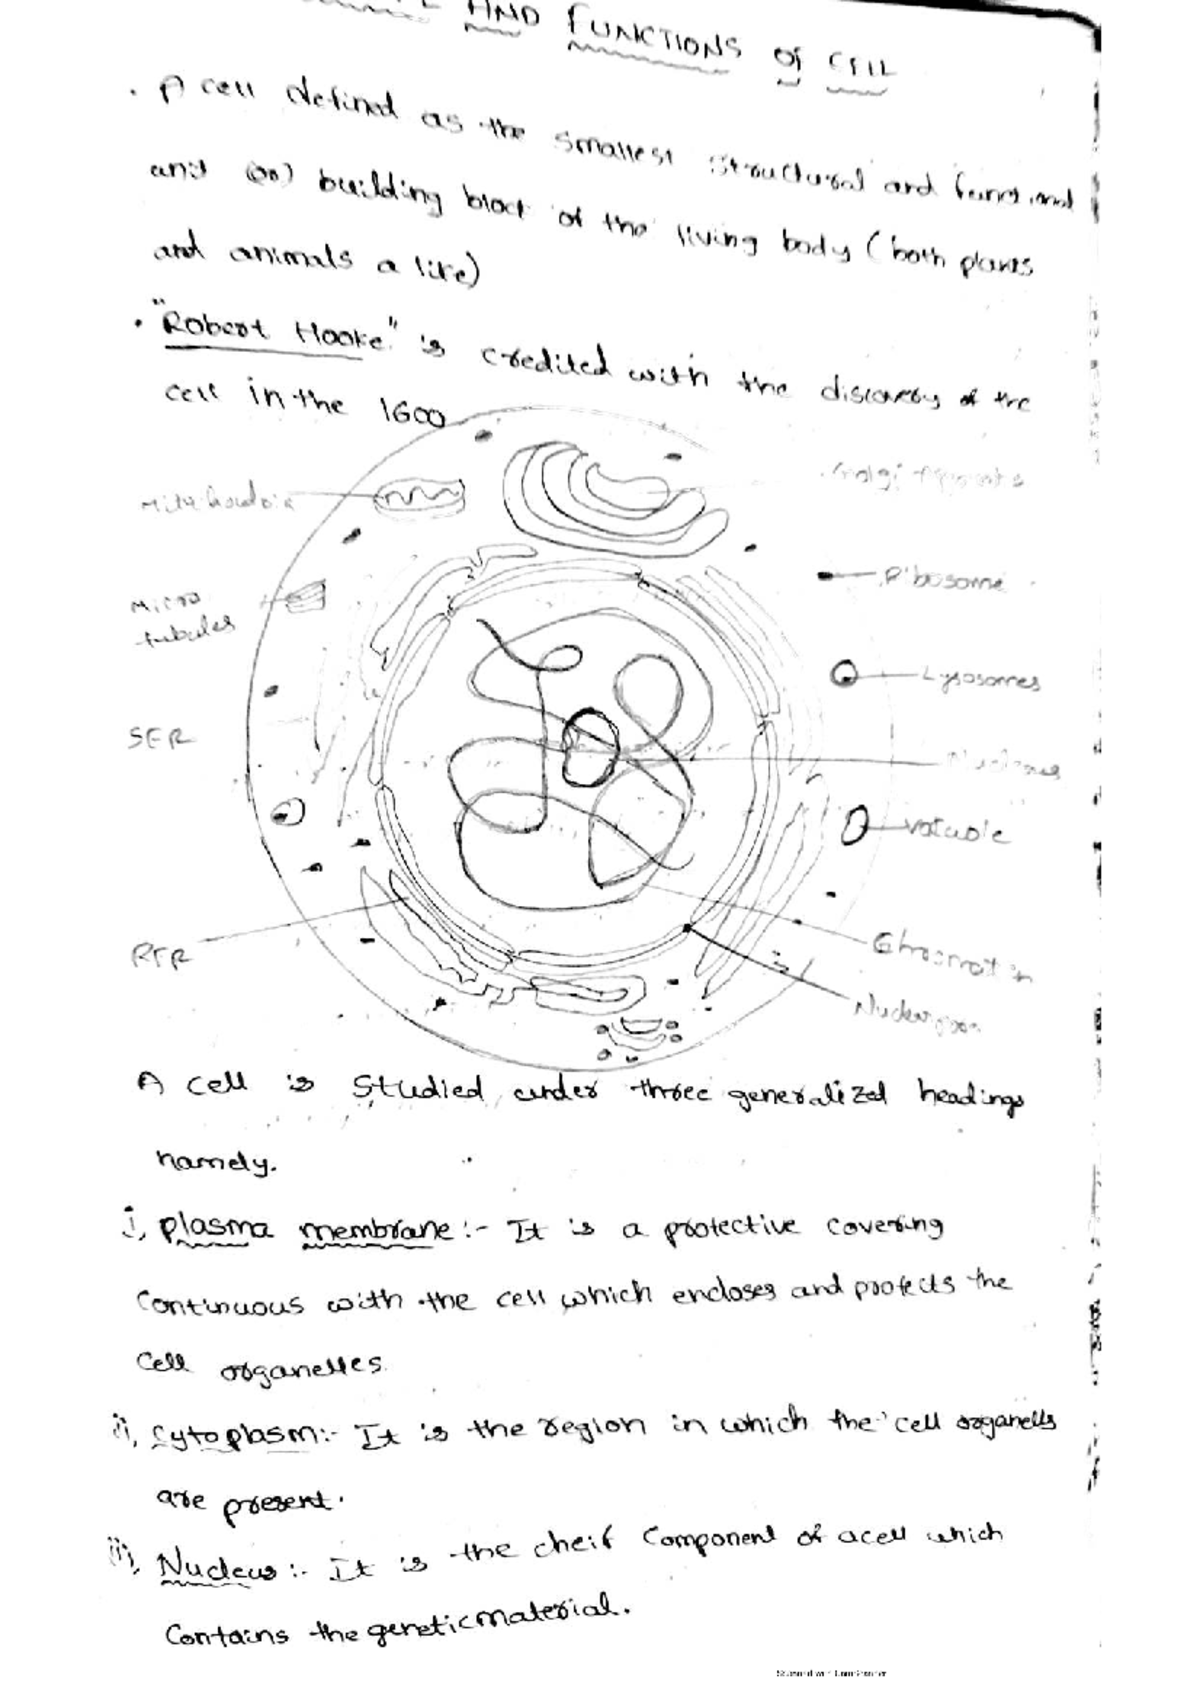 AND FUNCTIONS of CELL
. A cell defined as the smallest structural and functional
unit (or) building block of the living body (both plants
and animals a like)
. "Robert Hooke" is credited with the discovery of the
cell in the 1600
Mitochondia
Golgi
Ribosome
Micro
tubules
Lysosomes
SER
vacuole
RER
Chromatin
A cell is studied under three generalized headings
namely.
i, plasma membrane :- It is a protective covering
continuous with the cell which encloses and protects the
cell organelles.
ii, cytoplasm:- It is the region in which the cell organells
are present.
iii, Nucleus :- It is the cheif component of a cell which
contains the genetic material.